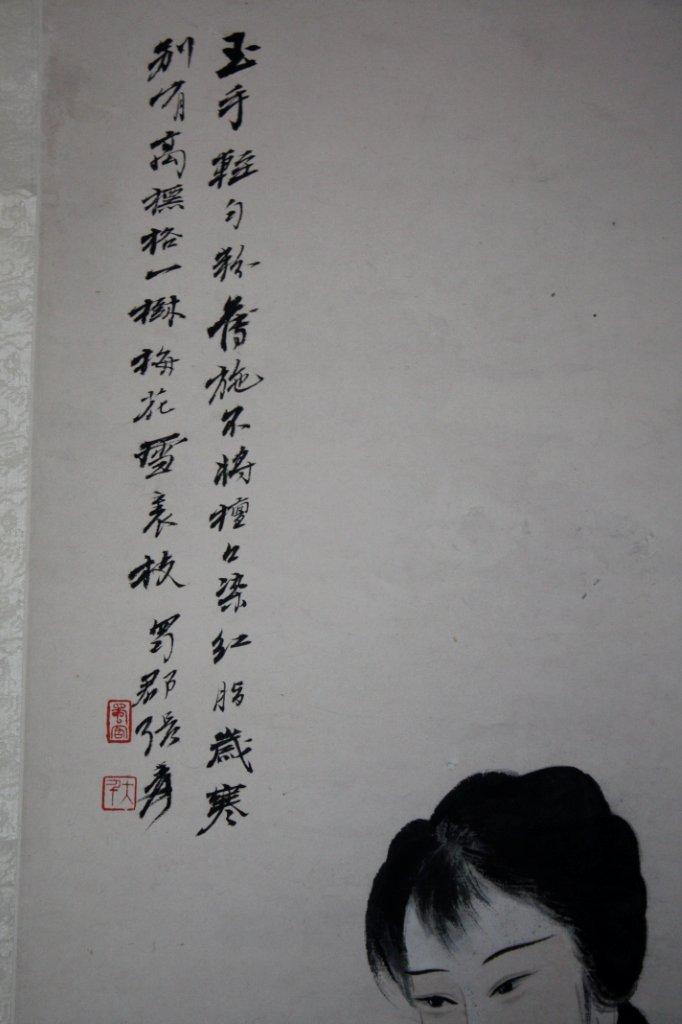 玉手輕勻粉薄施不將檀口染紅脂歲寒
別有高標格一樹梅花雪裏枝 蜀郡張爰
蜀客
大千